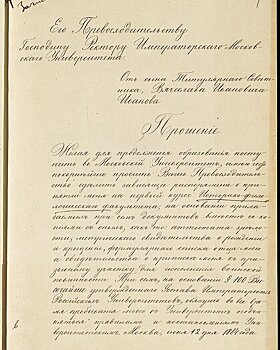 Его Превосходительству
Господину Ректору Императорскаго Москов-
скаго Университета.
Отъ сына Титулярнаго Совѣт-
ника, Вячеслава Ивановича
Иванова
Прошеніе
Желая для продолженія образованія посту-
пить въ Московскій Университетъ, имѣю честь
покорнѣйше просить Ваше Превосходитель-
ство сдѣлать зависящее распоряженіе о при-
нятіи меня на первый курсъ Историко-фило-
логическаго факультета на основаніи прила-
гаемыхъ при семъ документовъ вмѣстѣ съ ко-
піями съ оныхъ, какъ-то: аттестата зрѣло-
сти, метрическаго свидѣтельства о рожденіи
и крещеніи, формулярнаго списка отца моего
и свидѣтельства о припискѣ меня къ при-
зывному участку для исполненія воинской
повинности. При семъ, на основаніи § 100 Вы-
сочайше утвержденнаго Устава Императорскихъ
Россійскихъ Университетовъ, обязуюсь во все вре-
мя пребыванія моего въ Университетѣ подчи-
няться правиламъ и постановленіямъ Уни-
верситетскимъ. Москва, іюля 12 дня 1884 года.